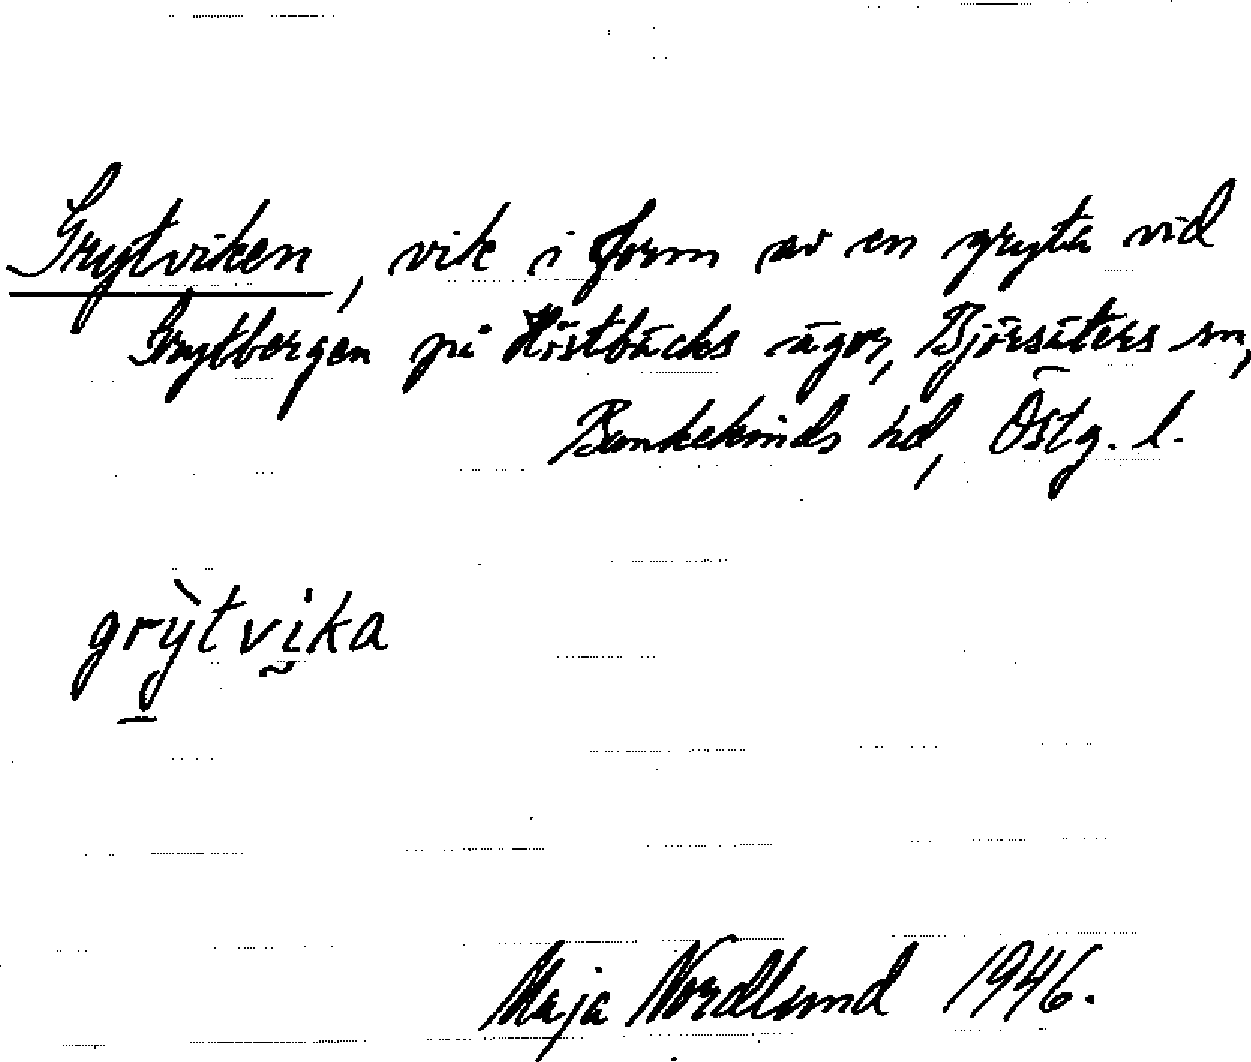 Grytviken, vik i form av en gryta vid
Grytbergen på Höstbäcks ägor, Björsäters sn,
Bankekinds hd, Östg. l.
grỳtvika
Maja Nordlund 1946.